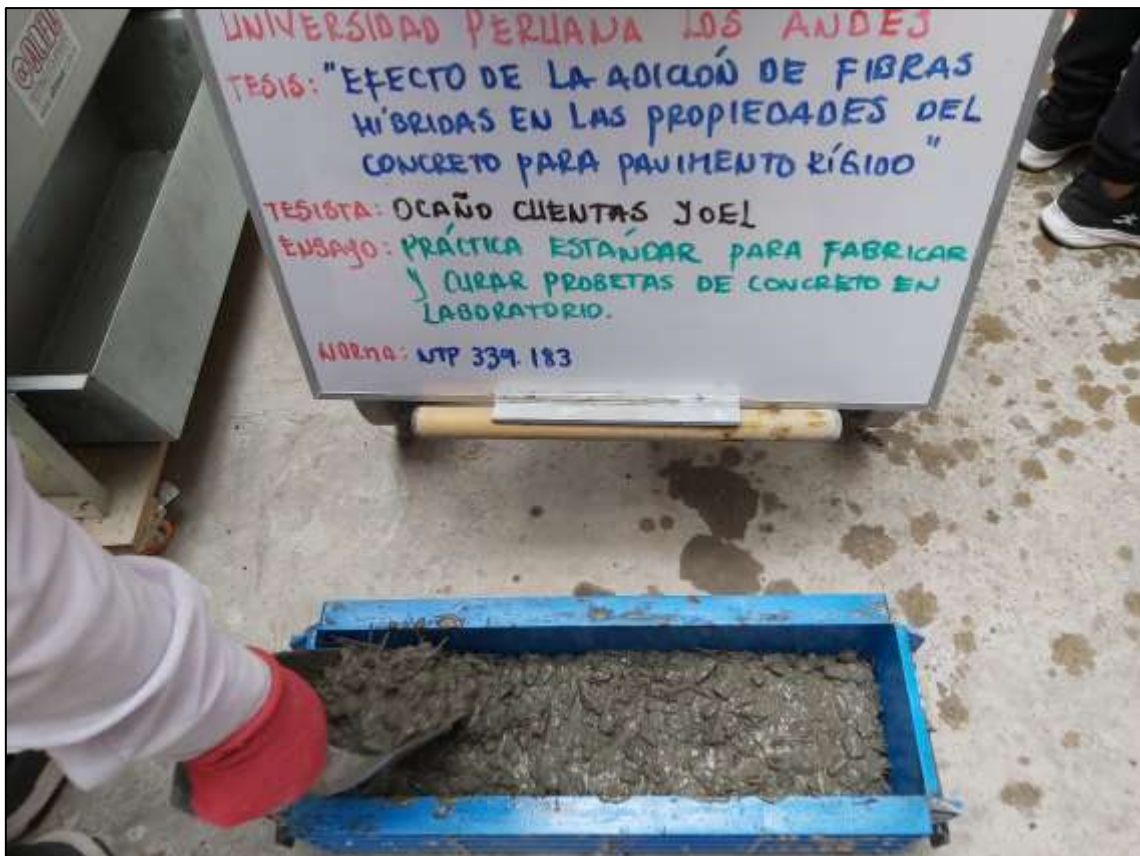 UNIVERSIDAD PERUANA LOS ANDES
TESIS: "EFECTO DE LA ADICIÓN DE FIBRAS
HÍBRIDAS EN LAS PROPIEDADES DEL
CONCRETO PARA PAVIMENTO RÍGIDO"
TESISTA: OCAÑO CUENTAS JOEL
ENSAYO: PRÁCTICA ESTAŃDAR PARA FABRICAR
Y CURAR PROBETAS DE CONCRETO EN
LABORATORIO.
NORMA: NTP 339.183